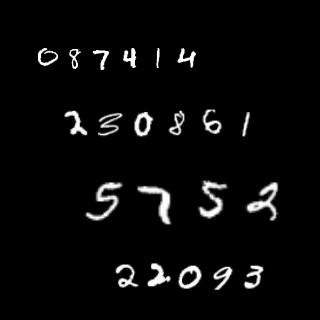 087414
230861
5752
22093